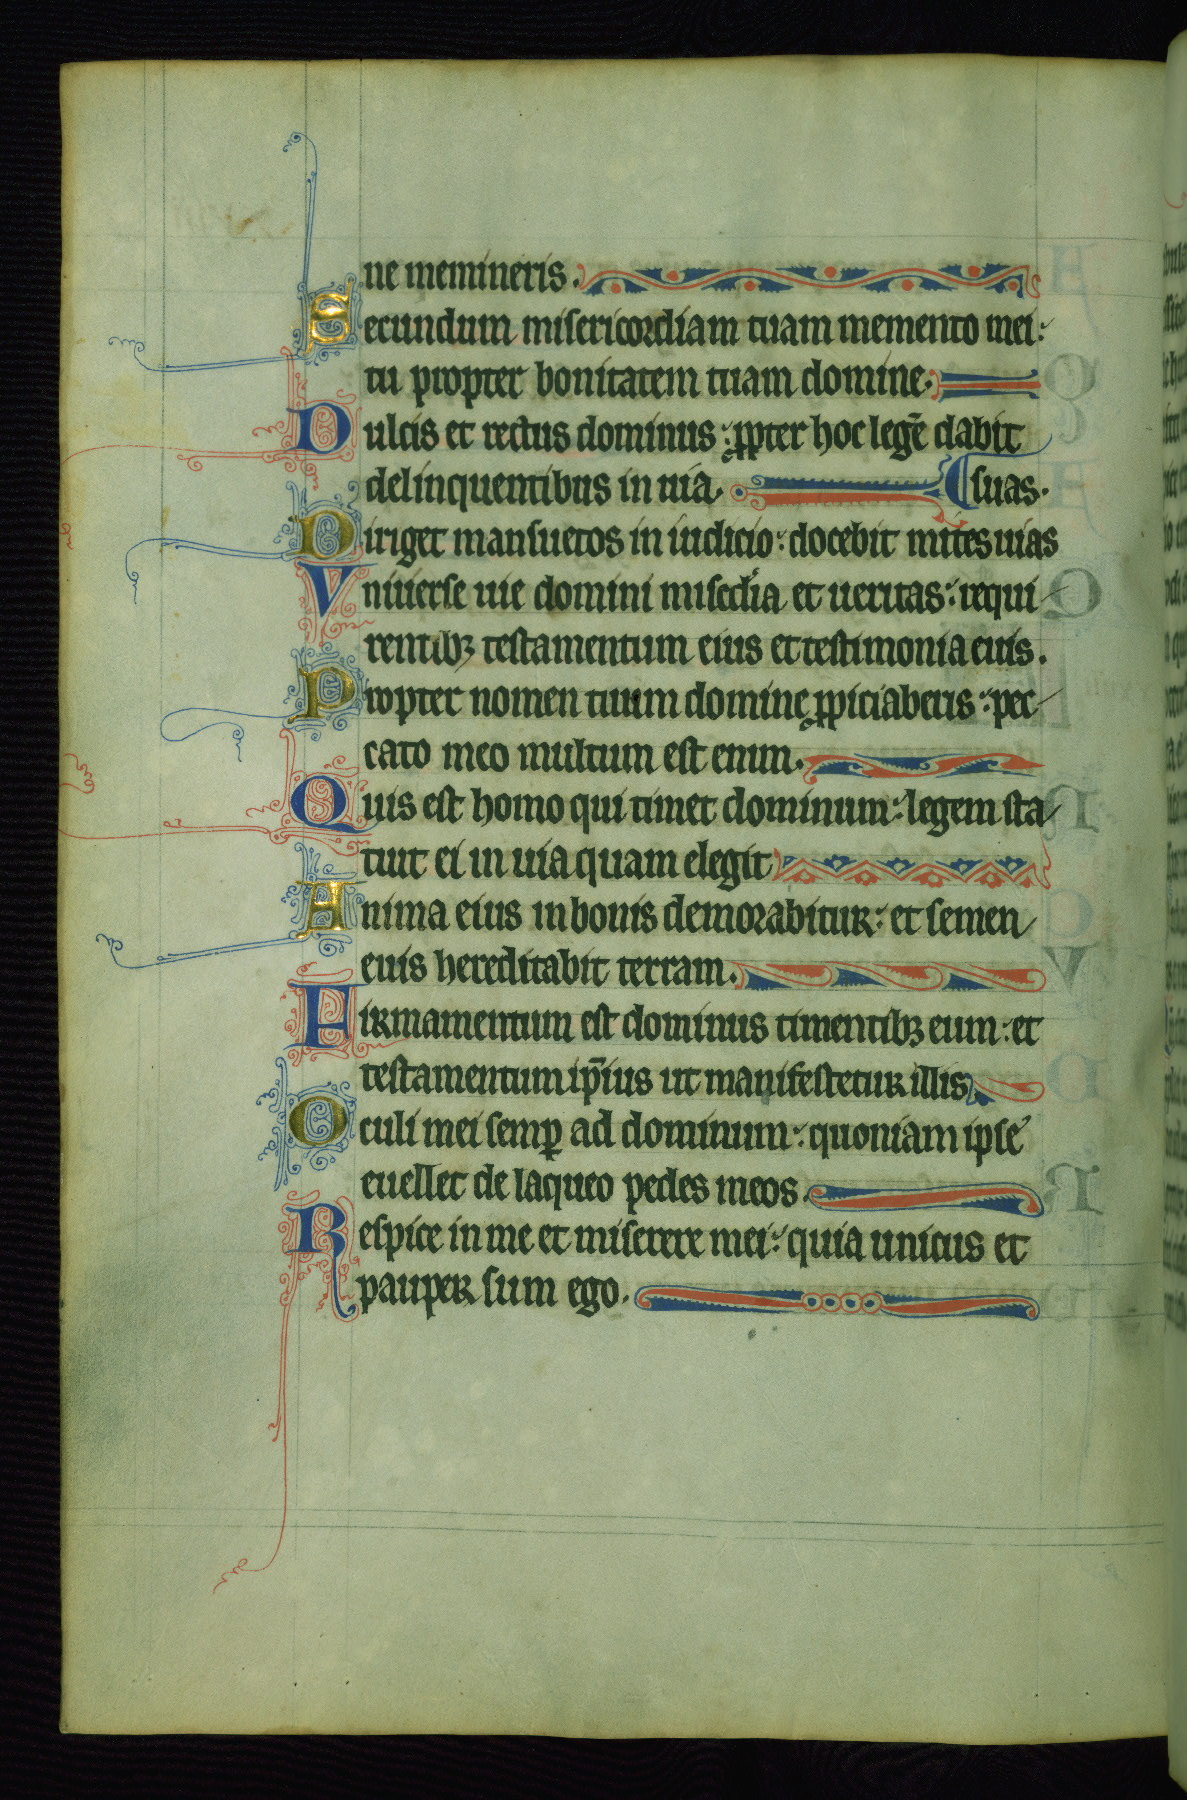 ne memineris.
Secundum misericordiam tuam memento mei:
tu propter bonitatem tuam domine.
Dulcis et rectus dominus: ꝓpter hoc legē dabit
delinquentibus in uia.
suas.
Diriget mansuetos in iudicio: docebit mites uias
Vniuerse uie domini miscd'ia et ueritas: requi
rentibꝫ testamentum eius et testimonia eius.
Propter nomen tuum domine ꝓpiciaberis: pec
cato meo multum est enim.
Quis est homo qui timet dominum: legem sta
tuit ei in uia quam elegit
Anima eius in bonis demorabitur: et semen
eius hereditabit terram.
Firmamentum est dominus timentibꝫ eum: et
testamentum ip̄ius ut manifestetur illis
Oculi mei semꝑ ad dominum: quoniam ipse
euellet de laqueo pedes meos.
Respice in me et miserere mei: quia unicus et
pauper sum ego.